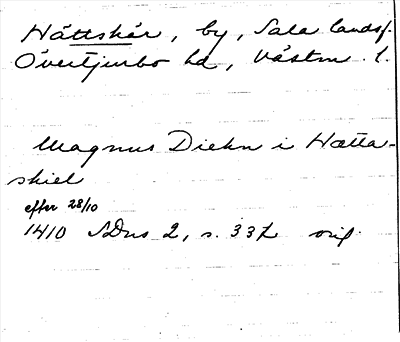 Hättskär, by, Sala landsf.
Övertjurbo hd, Västm. l.
Magnus Diekn i Hætta-
skiel
efter 28/10
1410 SDns 2, s. 332 orig.